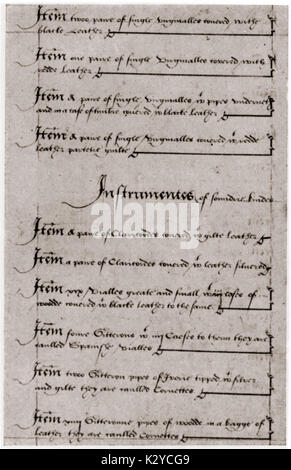 Item twoo paire of single Virginalles covered with
blacke Leather
Item one paire of single Virginalles covered with
redde Leather
Item a paire of single Virginalles wt pipes undernethe
and in a case of timbre covered wt blacke leather
Item a paire of single Virginalles covered wt redde
leather partelie guilte
Instrumentes of soundrie kindes
Item a paire of Claricordes covered wt gilte leather
Item a paire of Claricordes covered wt leather silvered
Item xix Vialles greate and small wt iii cases of
woodde covered wt blacke leather to the same
Item foure Gitterons wt iiii Caeses to them they are
caulled Spanishe Vialles
Item twoo Gitteron pipes of Ivorie tipped wt silver
and gilte they are caulled Cornettes
Item xiiii Gitteronne pipes of woodde in a bagge of
leather they are caulled Cornettes
alamy
Image ID: K2YCG9
www.alamy.com